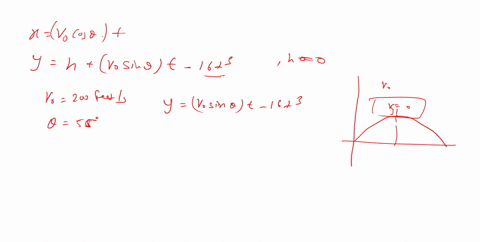 x = (V₀ cosθ) t
y = h + (V₀ sinθ) t - 16t³ , h = 0
V₀ = 200 feet/s
y = (V₀ sinθ) t - 16t³
θ = 55°
V₀